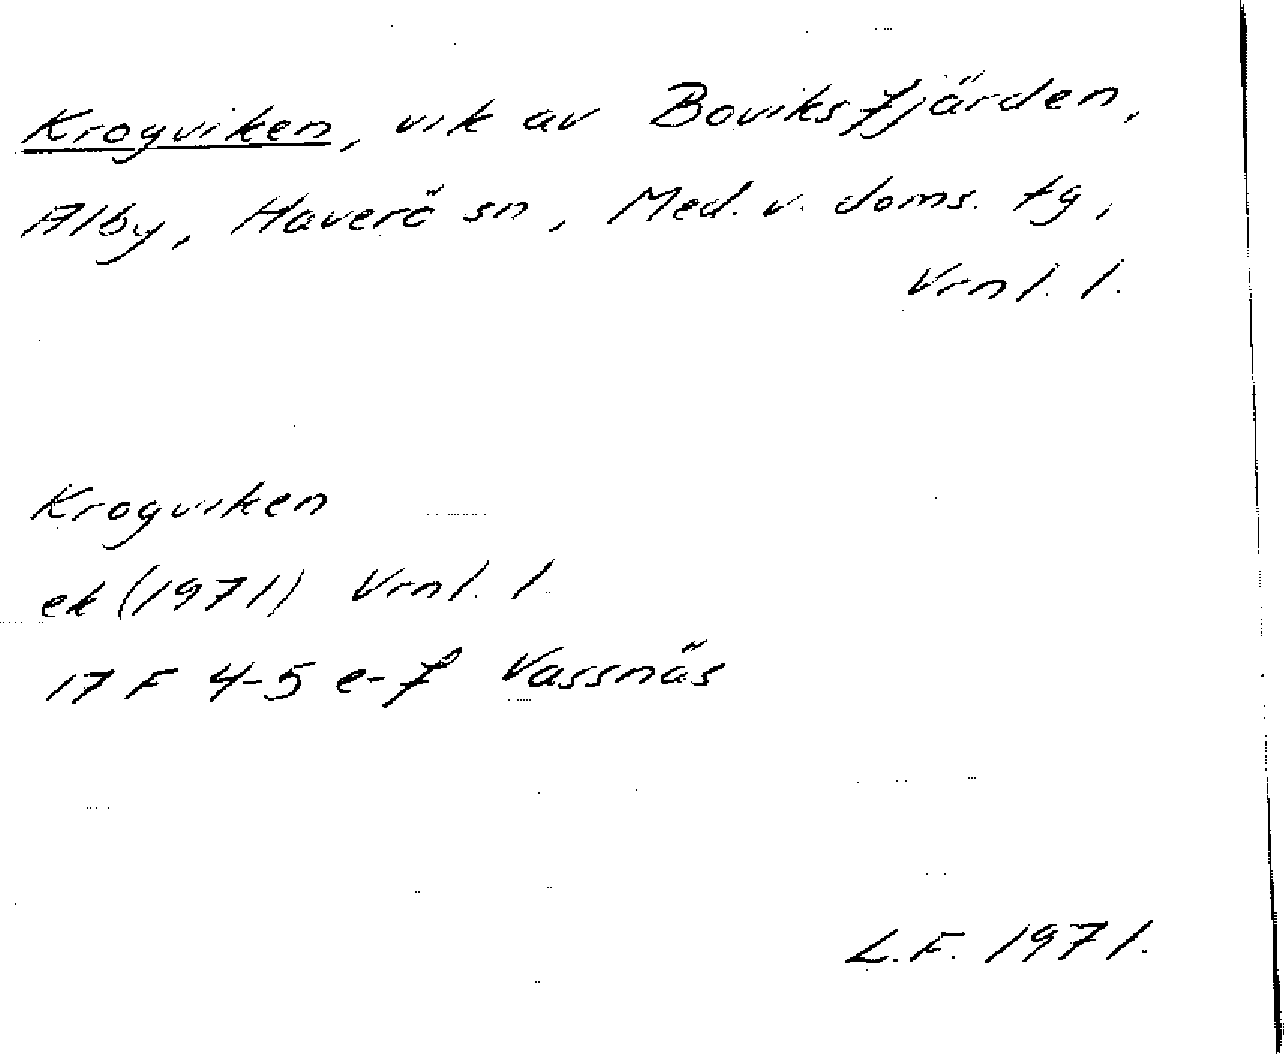 Krogviken, vik av Boviksfjärden,
Alby, Haverö sn, Med. v. doms. tg,
Vrnl. l.
Krogviken
ek (1971) Vrnl. l.
17 F 4-5 e-f Vassnäs
L.F. 1971.